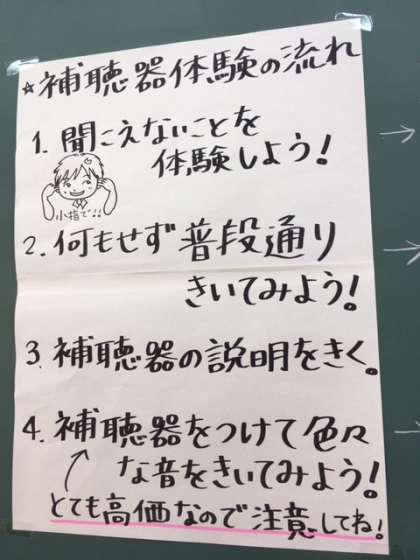 ☆補聴器体験の流れ
1. 聞こえないことを
体験しよう!
小指で!!
2. 何もせず普段通り
きいてみよう!
3. 補聴器の説明をきく。
4. 補聴器をつけて色々
な音をきいてみよう!
とても高価なので注意してね!